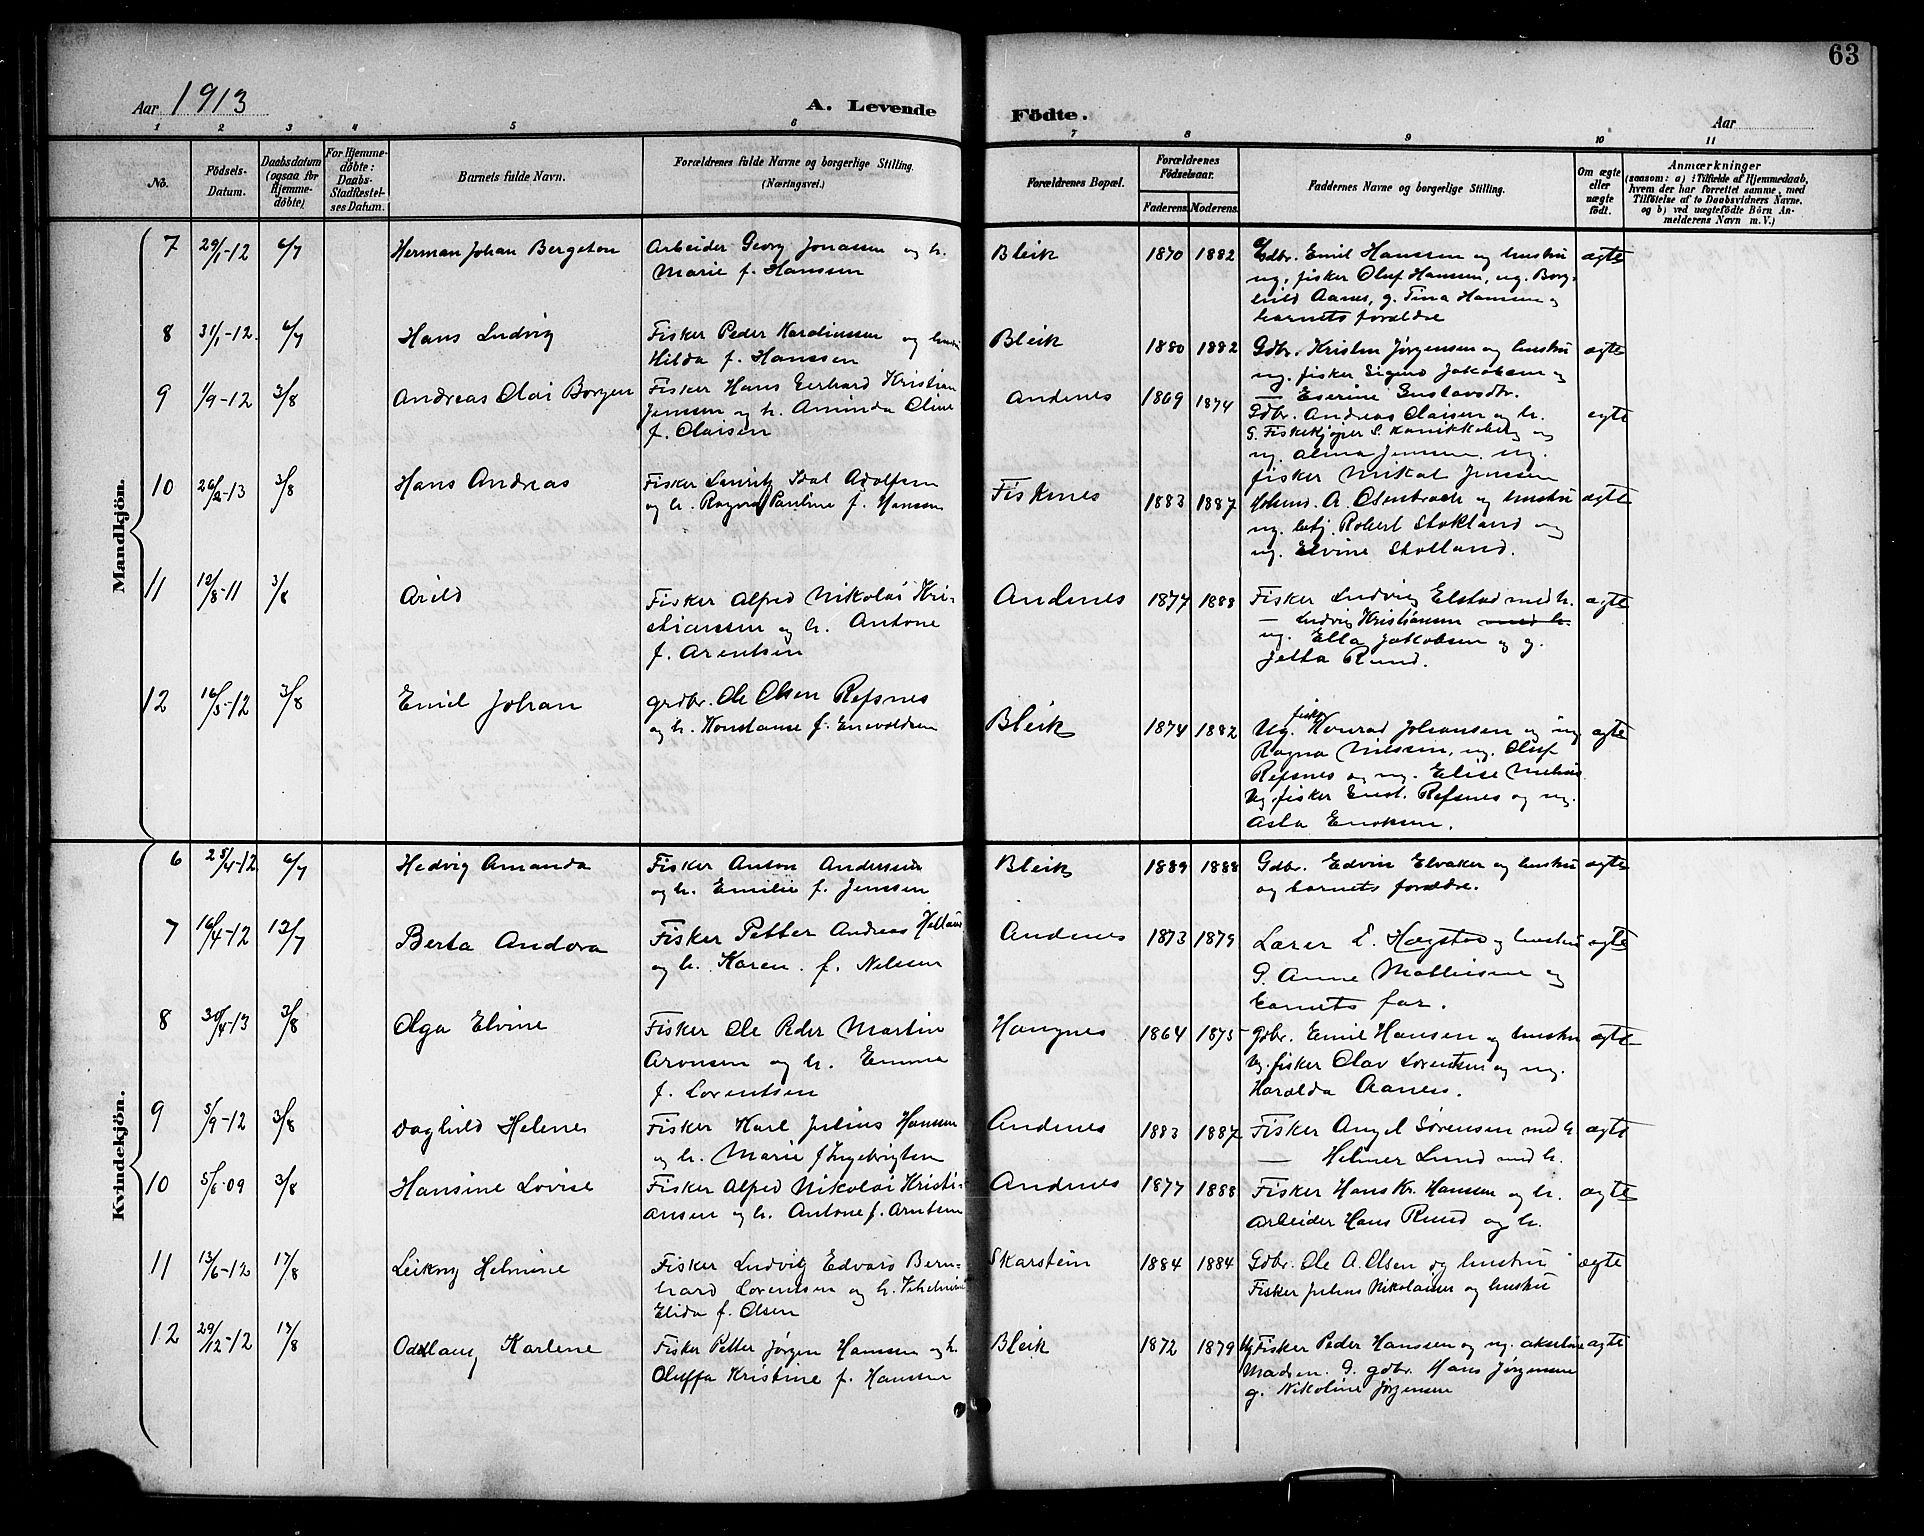 63
Aar 1913
A. Levende
Födte.
Aar
1 2 3 4 5 6 7 8 9 10 11
No.
Födsels-Datum.
Daabsdatum (ogsaa for Hjemme-döbte)
For Hjemme-döbte: Daabs-Stadfæstelses Datum.
Barnets fulde Navn.
Forældrenes fulde Navne og borgerlige Stilling. (Næringsvei.)
Forældrenes Bopæl.
Forældrenes Födselsaar.
Faderens. Moderens.
Faddernes Navne og borgerlige Stilling.
Om ægte eller uægte födt.
Anmærkninger
(saasom: a) i Tilfælde af Hjemmedaab, hvem der har forrettet samme, med Tilföielse af to Daabsvidners Navne. og b) ved uægtefödte Börn An-melderens Navn m. V.)
Mandkjön.
7 29/1-12 6/7 Herman Johan Bergeton Arbeider Georg Jonassen og h. Bleik 1870 1882 Gdbr. Emil Hanssen og hustru ægte
Marie f. Hanssen ug. fisker Oluf Hanssen, ug. Borg-
hild Aanes, g. Tina Hansen og
barnets forældre
8 31/1-12. 6/7 Hans Ludvig Fisker Peder og hustru Bleik 1880 1882 Gdbr. Kristen Jørgensen og hustru ægte
Hilda f. Hanssen ug. fisker Sigurd Jakobsen og
— Eserine Gustavsdtr.
9 1/9-12 3/8 Andreas Olai Borgen Fisker Hans Gerhard Kristian Andenes 1869 1874 Gdbr. Andreas Olaisen og h. ægte
Jenssen og h. Aminda Oline G. Fiskekjøper S. Kanikkeberg og
f. Olaisen ug. Alma Jenssen, ug.
fisker Mikal Jenssen
10 26/2-13 3/8 Hans Andreas Fisker Lauritz Adolfsen Fisknes 1883 1887 A. Olsen og hustru ægte
og h. Ragna Pauline f. Hanssen ug. Robert Stokland og
ug. Elvine Stolland.
11 12/8-11 3/8 Arild Fisker Alfred Nikolai Kri- Andenes 1877 1888 Fisker Ludvig Elstad med h. ægte
stianssen og h. Antone — Ludvig Kristiansen med h.
f. Arentsen ug. Ella Jakobsen og g.
Jetta Rund.
12 16/5-12 3/8 Emil Johan grdbr. Ole Olsen Refsnes Bleik 1874 1882 Ug. fisker Konrad Johansen og ug ægte
og h. Konstanse f. Enevoldsen Ragna Nilssen, ug. Oluf
Refsnes og ug. Elise
Ug. fisker Refsnes og ug.
Asta
Kvindekjön.
6 25/4-12 6/7 Hedvig Amanda Fisker Anton Anderssen Bleik 1889 1888 Gdbr. Edvin Elvaker og hustru ægte
og h. Emilie f. Jenssen og barnets forældre.
7 16/4-12 13/7 Berta Andora Fisker Petter Andreas Andenes 1873 1879 Lærer E. Hagstad og hustru ægte
og h. Karen f. Nilssen G. Anne og
barnets far.
8 30/4-13 3/8 Olga Elvine Fisker Ole Peder Martin Haugnes 1864 1875 Gdbr. Emil Hansen og hustru ægte
Aronsen og h. Emma Ug. fisker Olav Lorentsen og ug.
f. Lorentsen Haralda Aanes.
9 5/9-12 3/8 Daghild Helene Fisker Karl Julius Hanssen Andenes 1883 1887 Fisker Angel Sørensen med h ægte
og h. Marie f Ingebrigtsen — Helmer Lund med h.
10 5/6-09 3/8 Hansine Lovise Fisker Alfred Nikolai Kristi- Andenes 1877 1888 Fisker Hans Kr. Hanssen og h. ægte
ansen og h. Antone f. Arntsen Arbeider Hans Rund og h.
11 13/6-12 17/8 Leikny Helmine Fisker Ludvig Edvard Bern- Skarstein 1884 1884 Gdbr. Ole A. Olsen og hustru ægte
hard Lorentsen og h. Fisker Julius Nikolaisen og hustru
Elida f. Olsen
12 29/12-12 17/8 Oddlaug Karlene Fisker Petter Jørgen Hanssen og h. Bleik 1872 1879 Ug Fisker Peder Hanssen og ug. ægte
Oluffa Kristine f. Hanssen Madsen. G. gdbr. Hans Jørgensen
g. Nikoline Jørgensen